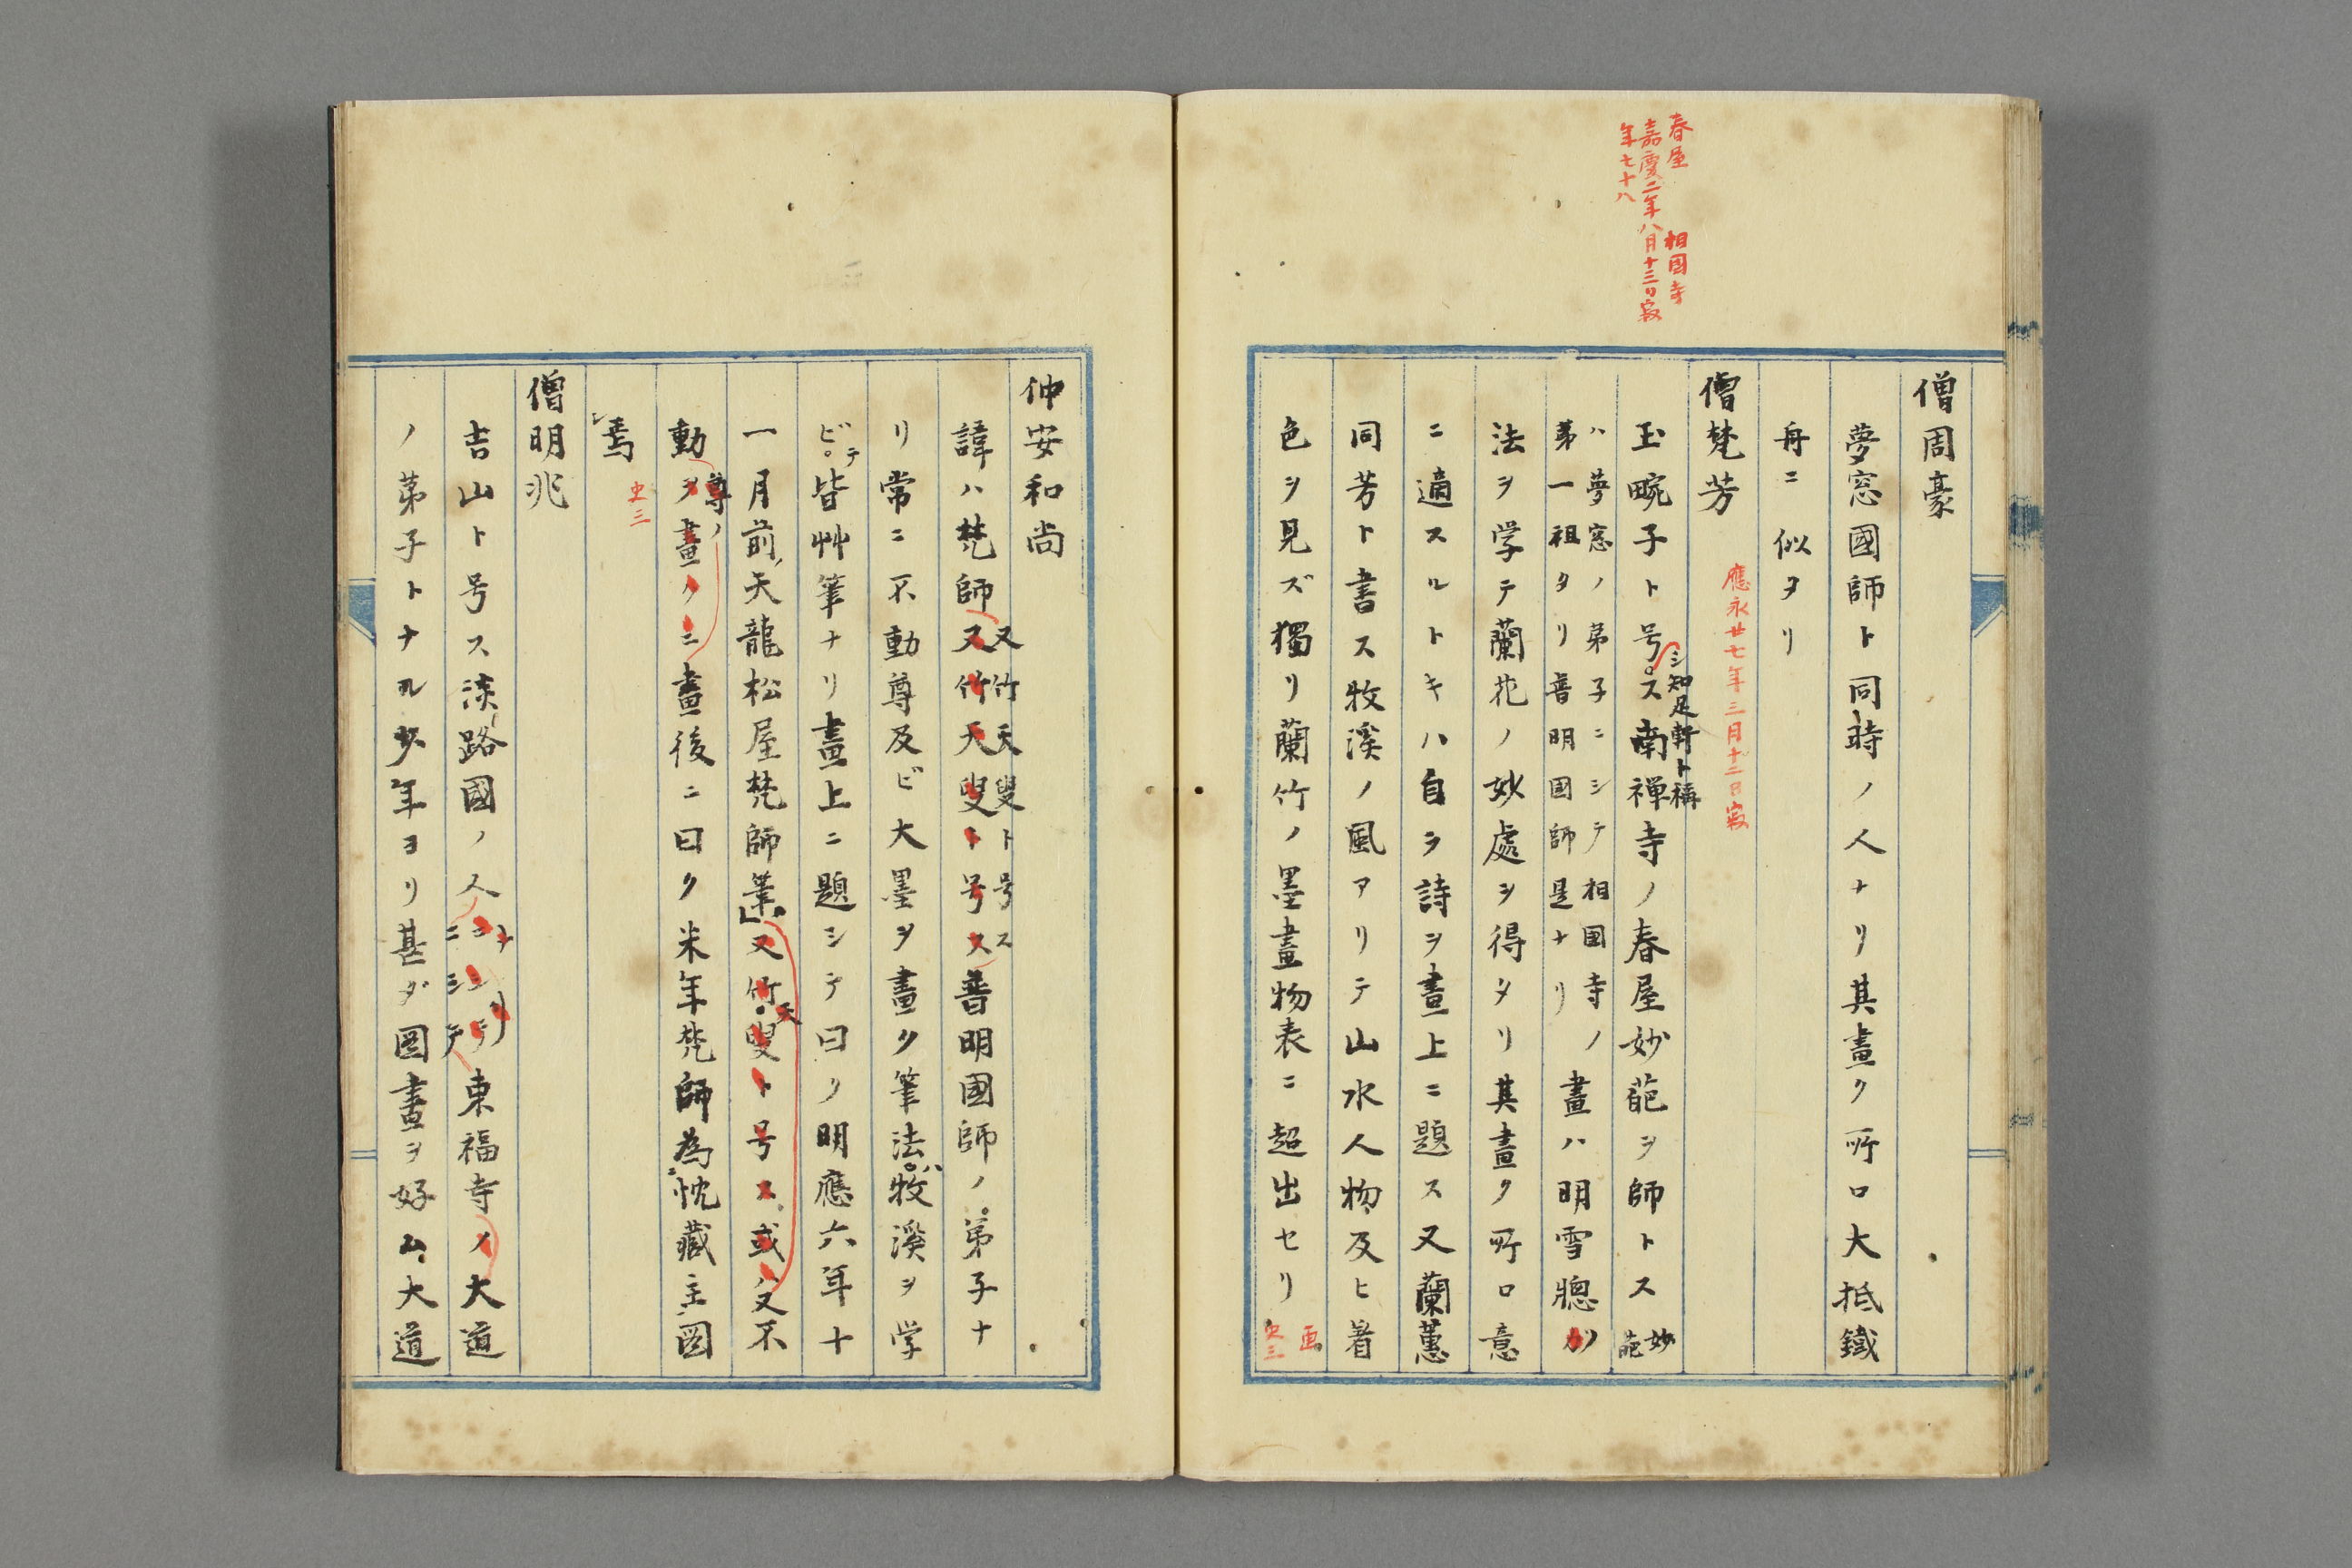 春屋　相國寺
嘉慶二年八月十三日寂
年七十八
僧周豪
夢窓國師ト同時ノ人ナリ其畫ク所ロ大抵鐵
舟ニ似ヲリ
僧梵芳
應永廿七年三月十二日寂
シ知足軒ト稱
玉畹子ト号ス南禅寺ノ春屋妙葩ヲ師トス妙葩
ハ夢窓ノ弟子ニシテ相國寺ノ
第一祖タリ普明国師是ナリ
畫ハ明雪牕ガ
法ヲ学テ蘭花ノ妙處ヲ得タリ其畫ク所ロ意
ニ適スルトキハ自ラ詩ヲ畫上ニ題ス又蘭蕙
同芳ト書ス牧溪ノ風アリテ山水人物及ヒ着
色ヲ見ズ獨リ蘭竹ノ墨畫物表ニ超出セリ
画
史三
仲安和尚
又竹天叟ト号ス
諱ハ梵師又竹天叟ト号ス普明國師ノ弟子ナ
リ常ニ不動尊及ビ大墨ヲ畫ク筆法ハ牧溪ヲ学
ビテ皆艸筆ナリ畫上ニ題シテ曰ク明應六年十
一月前天龍松屋梵師筆又竹天叟ト号ス或ハ又不
尊ノ
動ヲ畫クニ畫後ニ曰ク米年梵師為忱藏主圖
焉
史三
僧明兆
吉山ト号ス淡路國ノ人ニシテ東福寺ノ大道
ナリ
ニシテ
ノ弟子トナル少年ヨリ甚ダ圖畫ヲ好ム大道